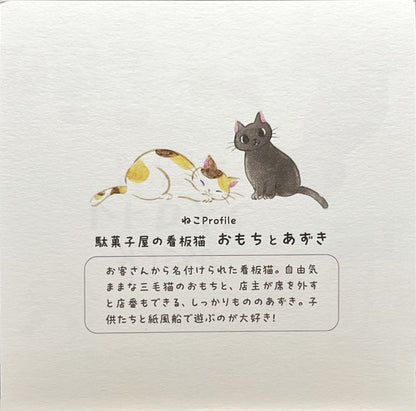 ねこProfile
駄菓子屋の看板猫 おもちとあずき
お客さんから名付けられた看板猫。自由気
ままな三毛猫のおもちと、店主が席を外す
と店番もできる、しっかりもののあずき。子
供たちと紙風船で遊ぶのが大好き!